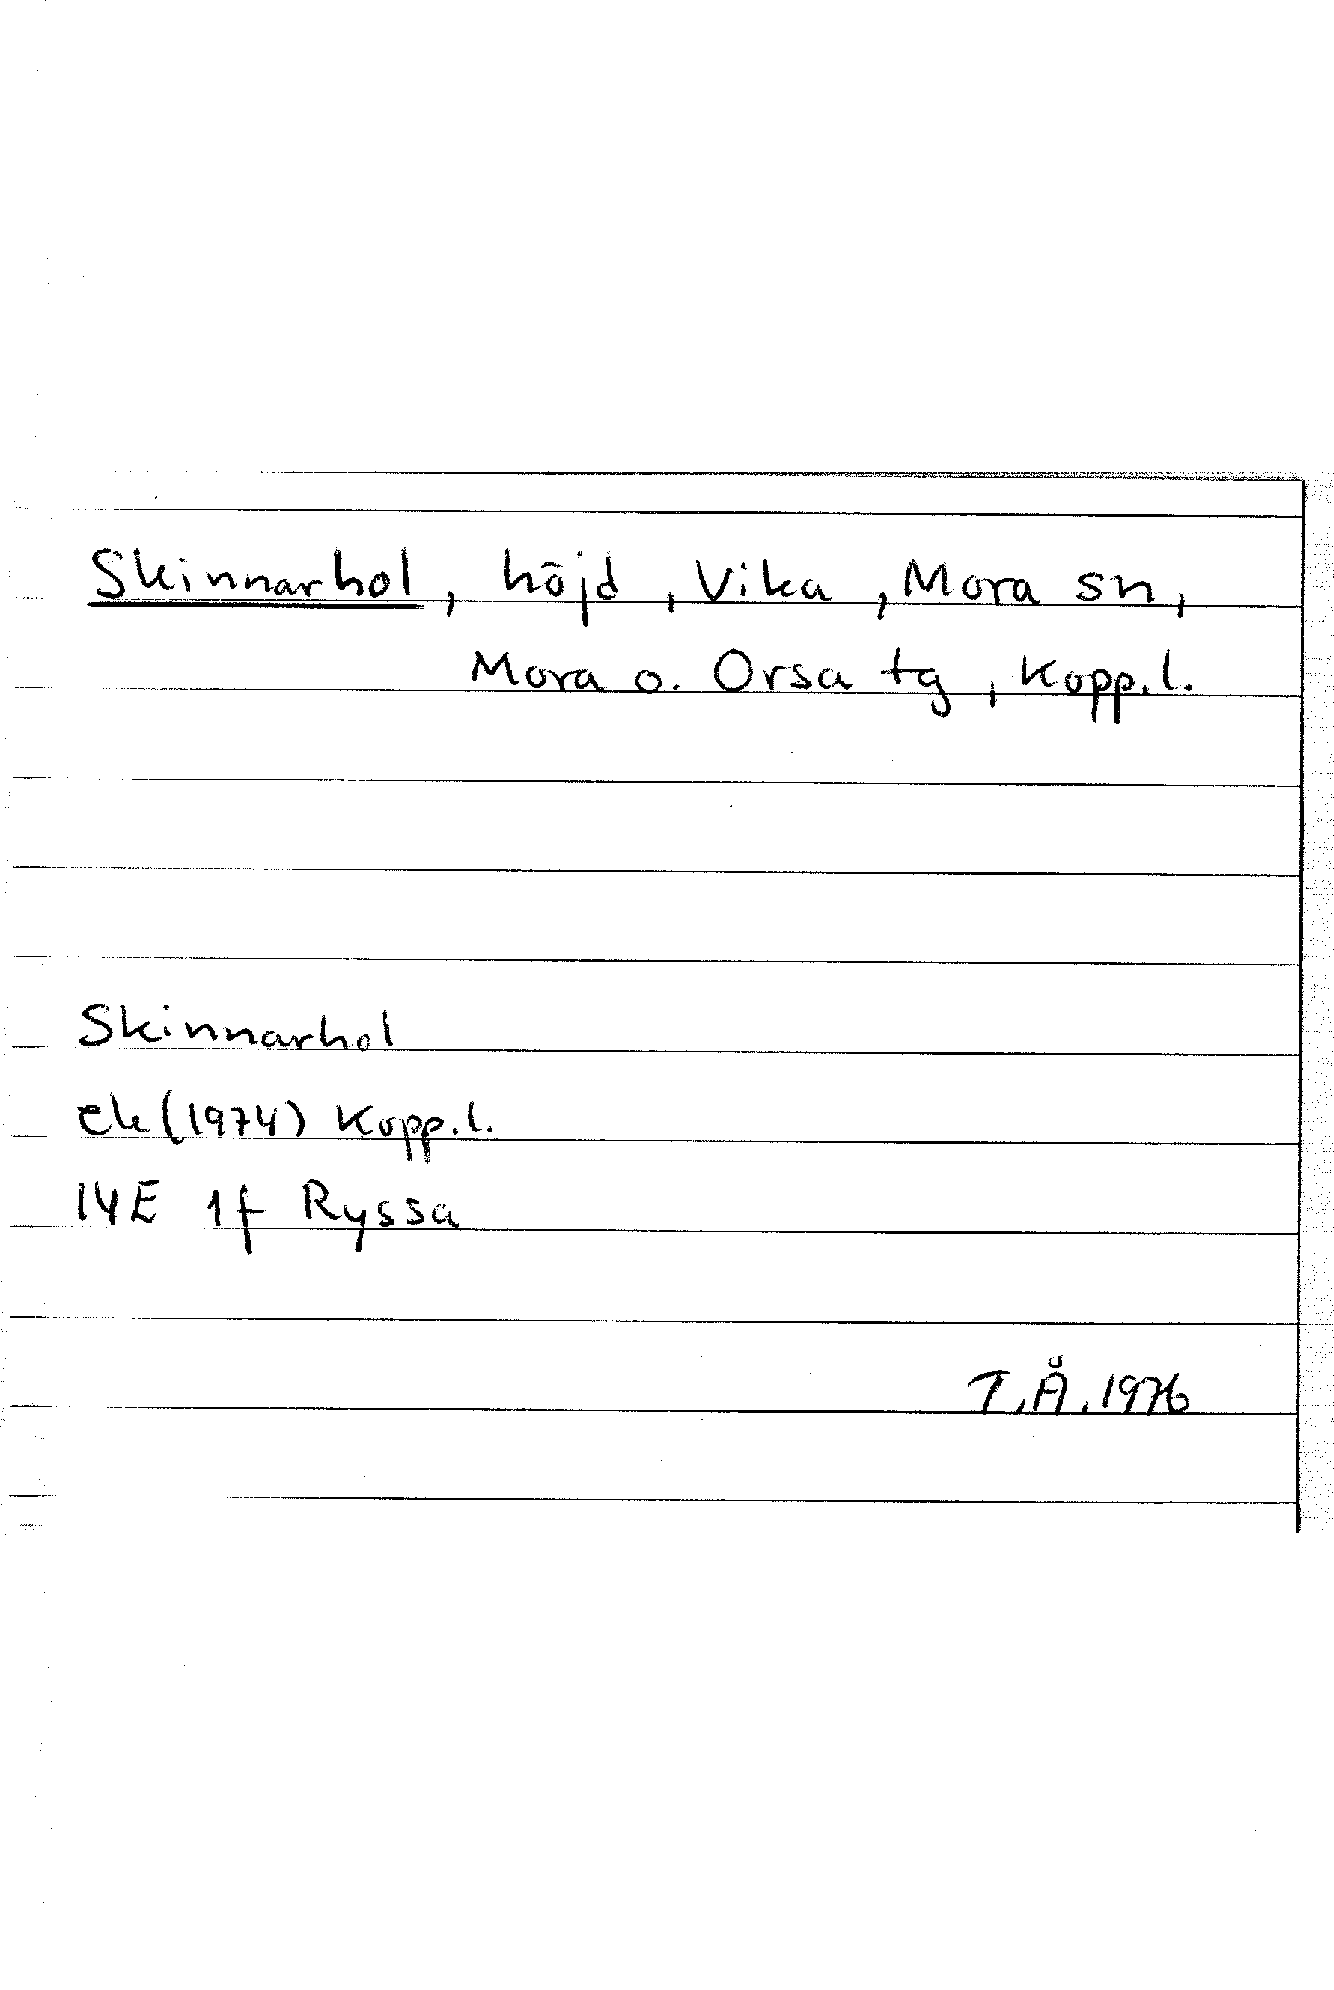 Skinnarhol, höjd, Vika, Mora sn,
Mora o. Orsa tg, Kopp.l.
Skinnarhol
ek (1974) Kopp.l.
14E 1f Ryssa
T.Å. 1976